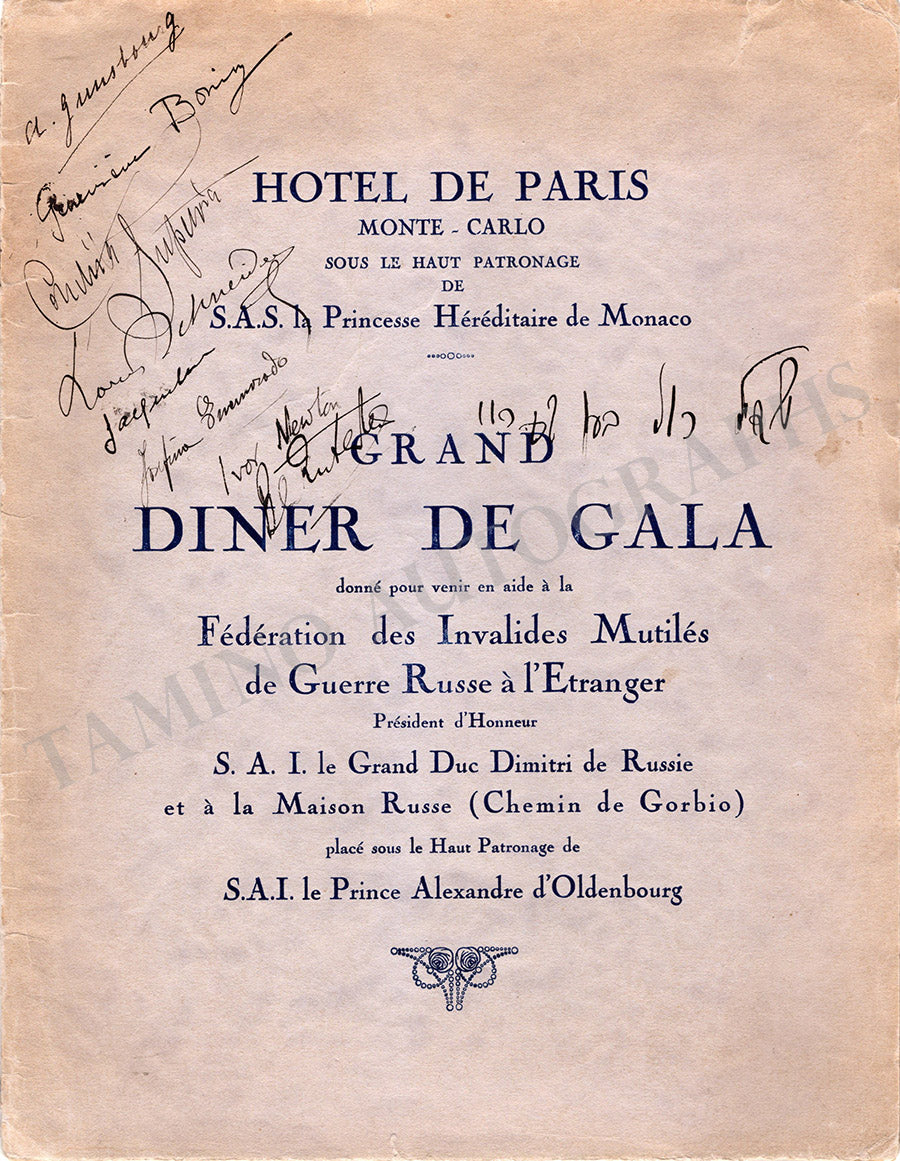 a. Gunsbourg
Geneviève
HOTEL DE PARIS
MONTE - CARLO
SOUS LE HAUT PATRONAGE
DE
S.A.S. la Princesse Héréditaire de Monaco
Louis Schneider
Ivor Newton
GRAND
DINER DE GALA
donné pour venir en aide à la
Fédération des Invalides Mutilés
de Guerre Russe à l'Etranger
Président d'Honneur
S. A. I. le Grand Duc Dimitri de Russie
et à la Maison Russe (Chemin de Gorbio)
placé sous le Haut Patronage de
S.A.I. le Prince Alexandre d'Oldenbourg
TAMINO AUTOGRAPHS